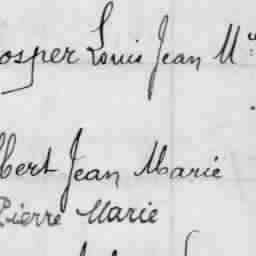 osper Louis Jean M
bert Jean Marie
Pierre Marie